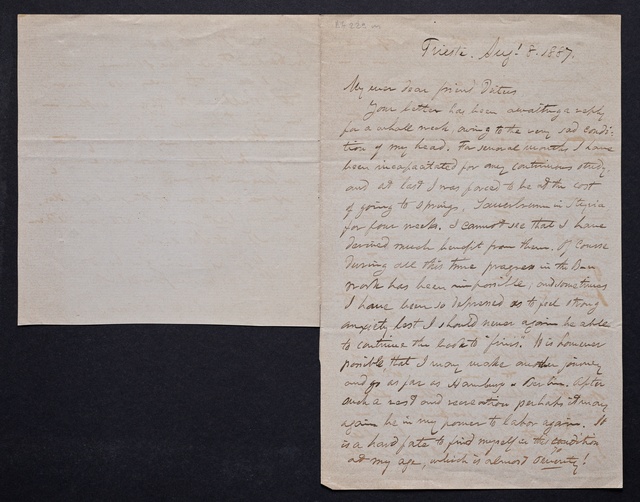 Trieste. Aug! 8. 1887.
My ever dear friend Deiters
Your letter has been awaiting a reply
for a whole week, owing to the very sad condi-
tion of my head. For several months I have
been incapacitated for any continuous study,
and at last I was forced to be at the cost
of going to springs, Sauerbrunn in Styria
for four weeks. I cannot see that I have
derived much benefit from them. Of course
during all this time progress in the Bee.
work has been impossible, and sometimes
I have been so depressed as to feel strong
anxiety lest I should never again be able
to continue the book to "finis". It is however
possible that I may make another journey
and go as far as Hamburg & Berlin. After
such a rest and recreation perhaps it may
again be in my power to labor again. It
is a hard fate to find myself in this condition
at my age, which is almost seventy!